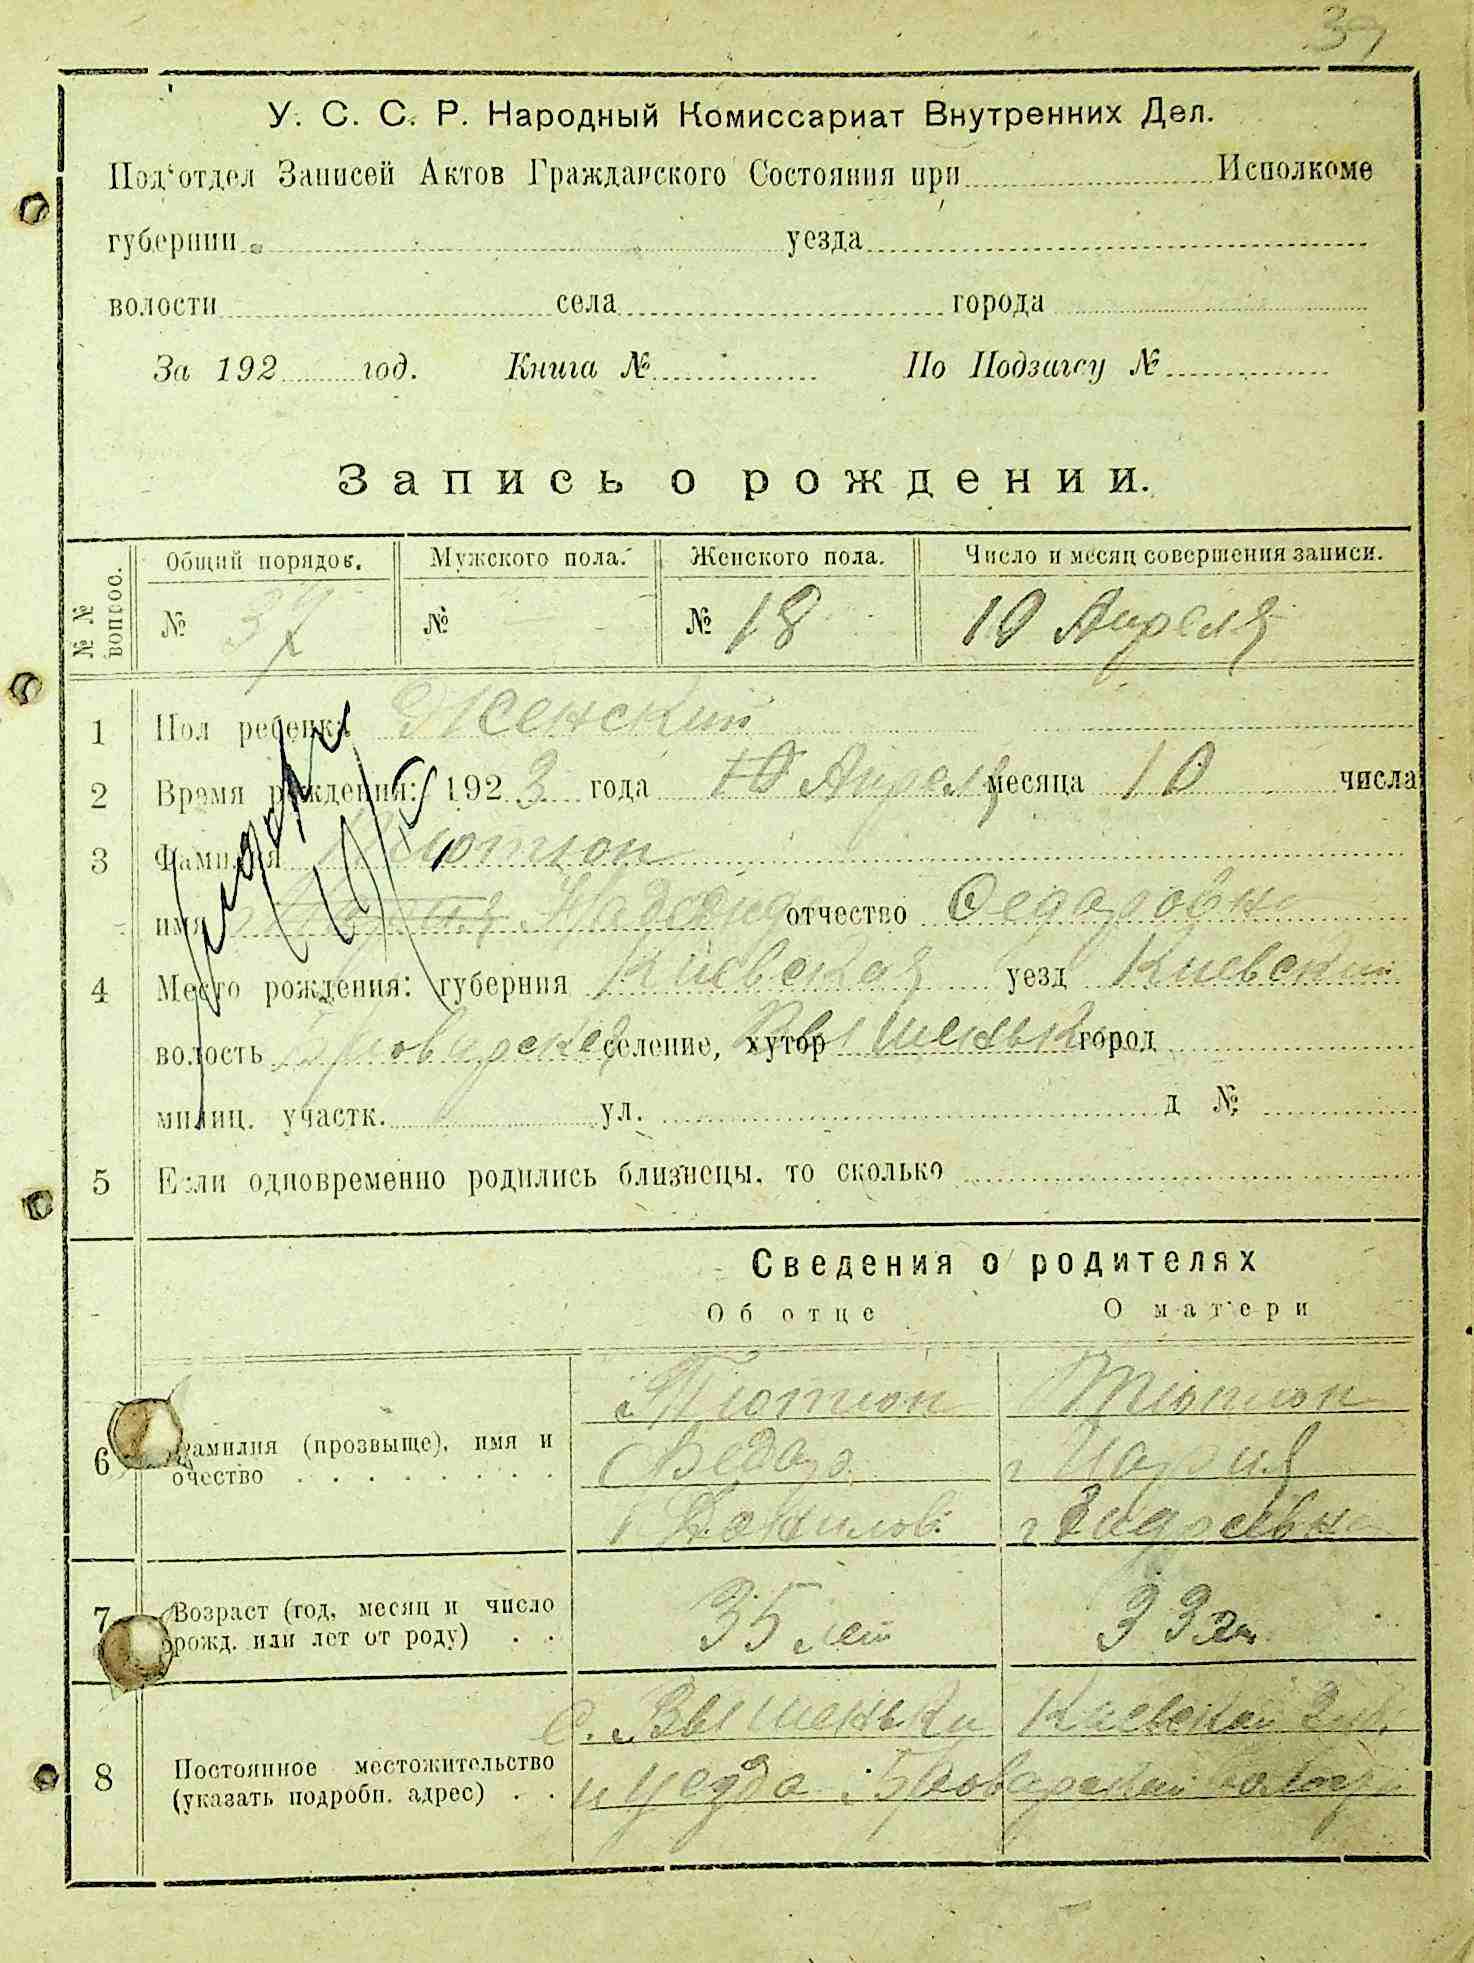 37
У. С. С. Р. Народный Комиссариат Внутренних Дел.
Под'отдел Записей Актов Гражданского Состояния при Исполкоме
губернии уезда
волости села города
За 192 год. Книга № По Подзагсу №
Запись о рождении.
№№ вопрос. Общий порядок. Мужского пола. Женского пола. Число и месяц совершения записи.
№ 37 № № 18 10 Апреля
1 Пол ребенка Женский
2 Время рождения: 1923 года 10 Апреля месяца 10 числа
3 Фамилия Тютюн
имя Мария Надежда отчество Федоровна
4 Место рождения: губерния Киевская уезд Киевский
волость Броварская селение, хутор Вышеньки город
милиц. участк. ул. д №
5 Если одновременно родились близнецы, то сколько
Сведения о родителях
Об отце О матери
6 Фамилия (прозвыще), имя и очество
Тютюн Тютюн
Федор Мария
Данилов. Андреевна
7 Возраст (год, месяц и число рожд. или лет от роду)
35 лет 33 г.
8 Постоянное местожительство (указать подробн. адрес)
с. Вышеньки Киевской Губ.
и уезда Броварской волости